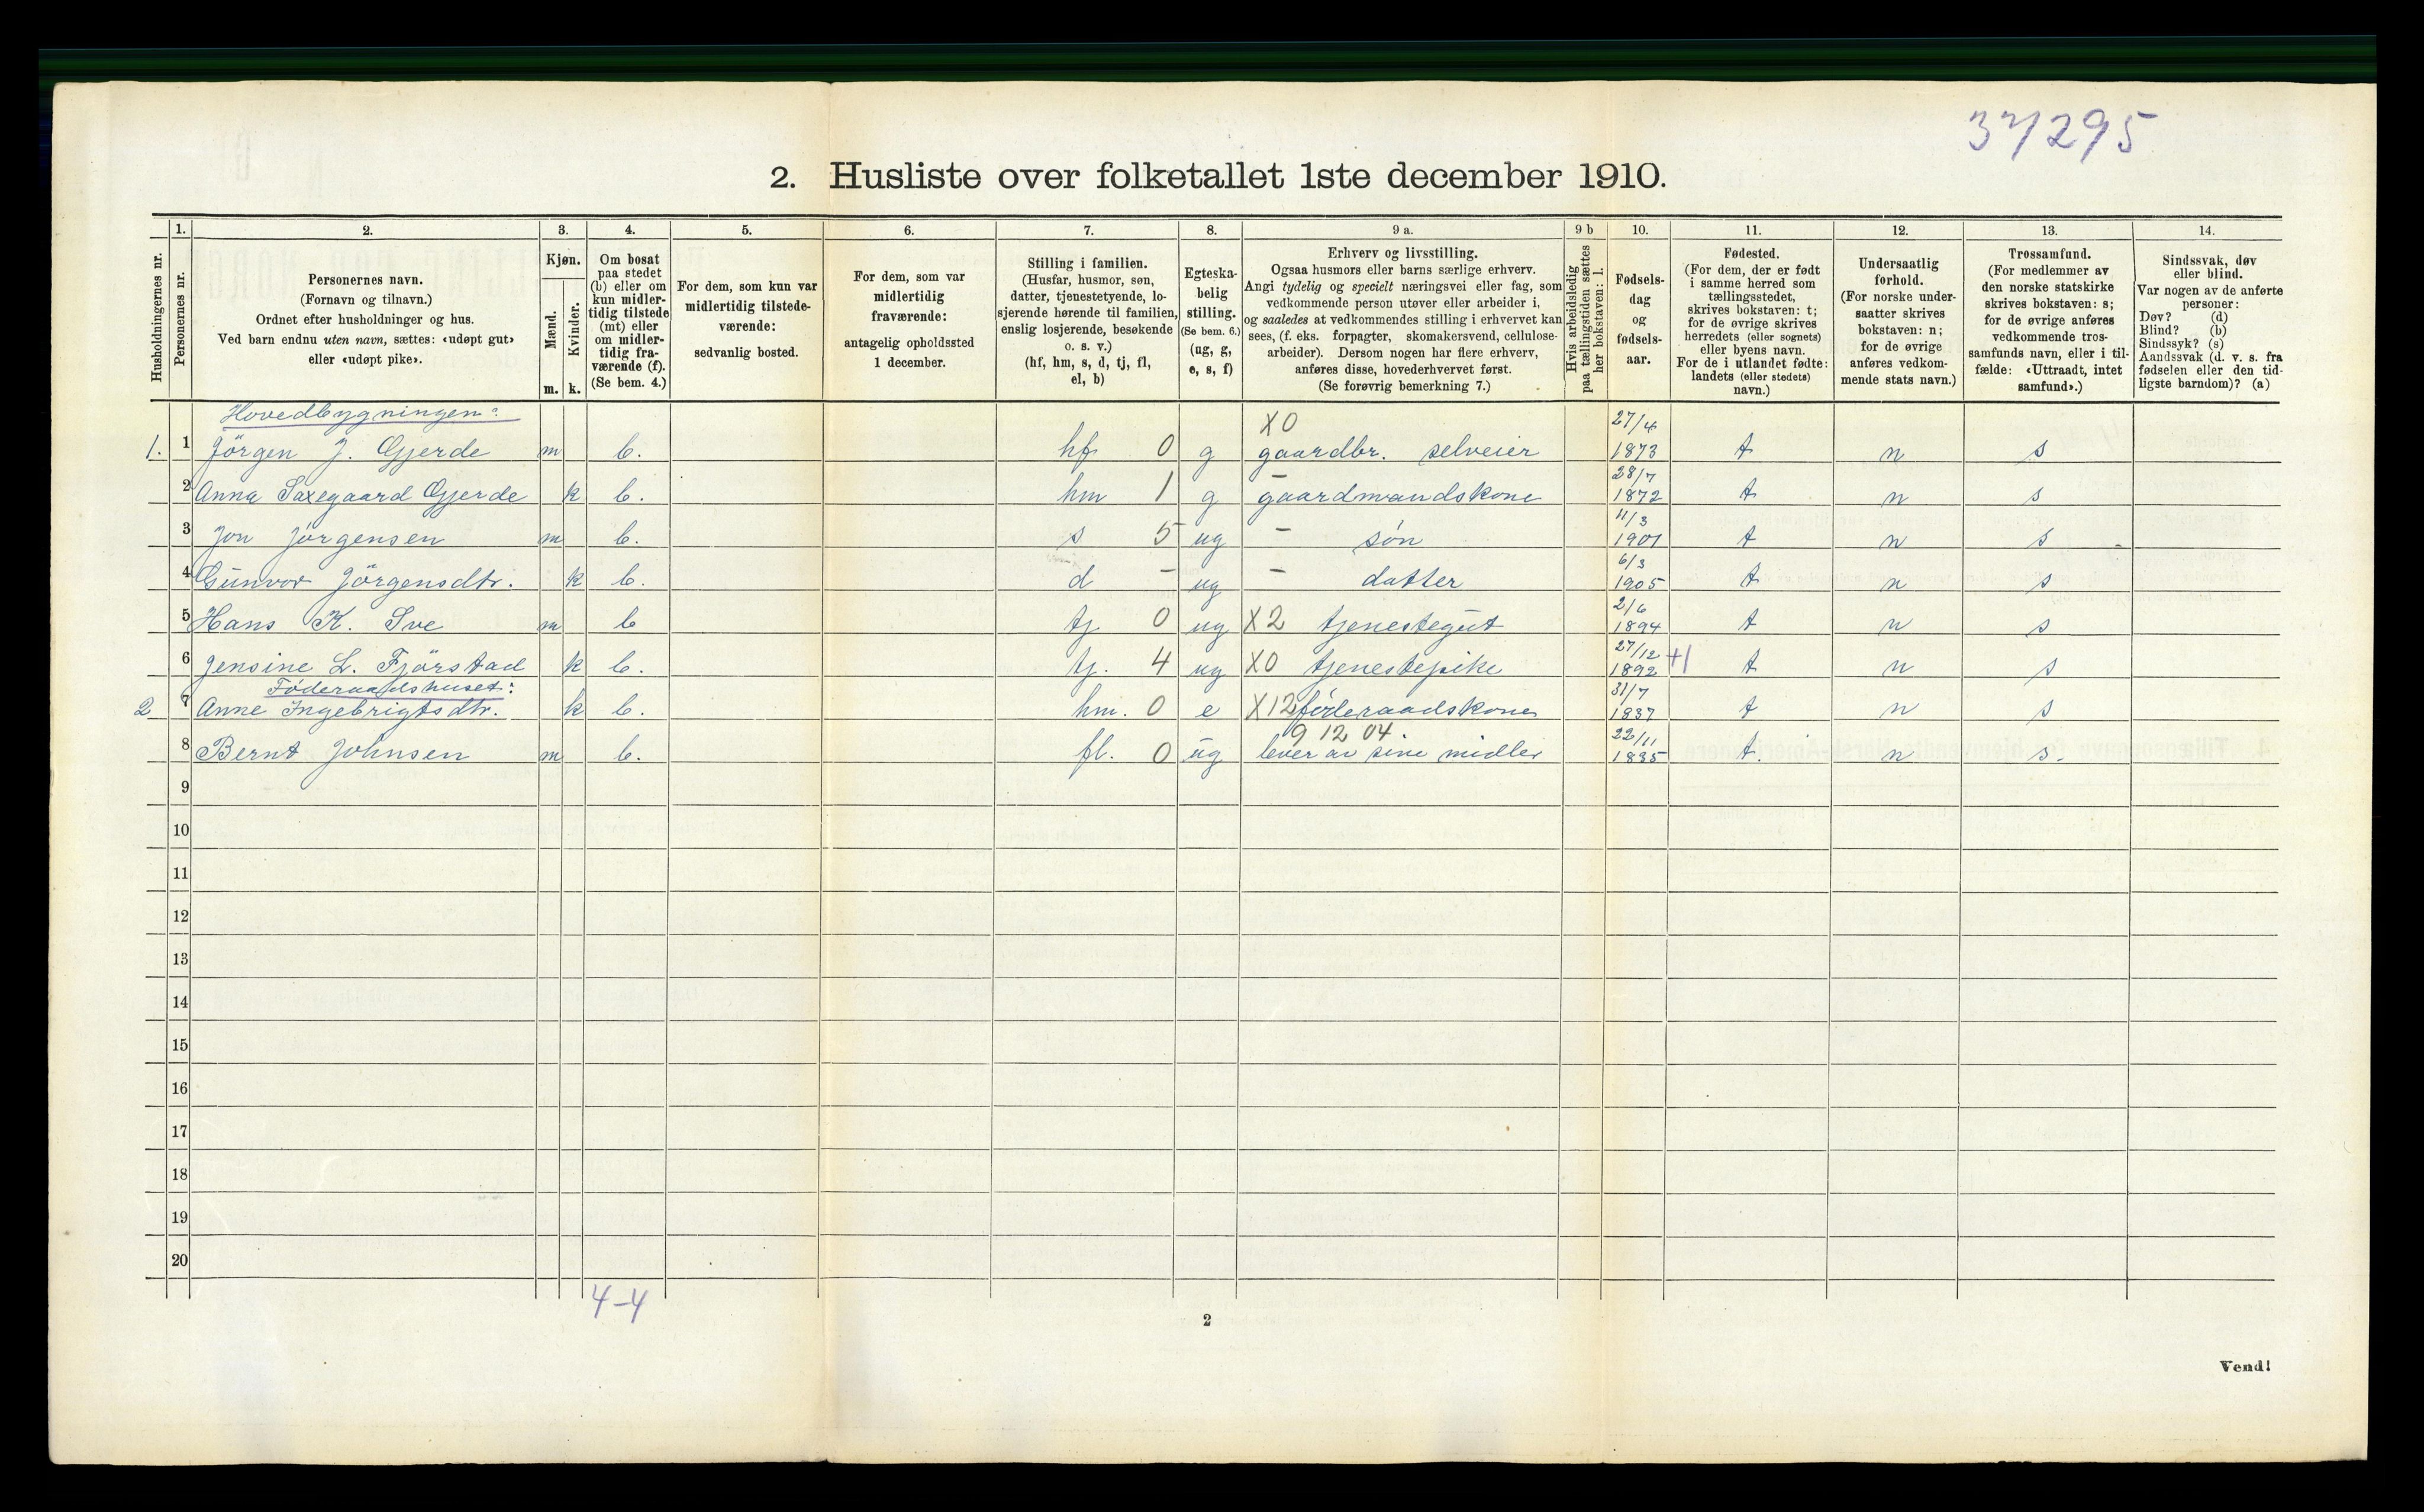 37/295
2. Husliste over folketallet 1ste december 1910.
Husholdningernes nr.
1.
Personernes nr.
2.
Personernes navn.
(Fornavn og tilnavn.)
Ordnet efter husholdninger og hus.
Ved barn endnu uten navn, sættes: «udøpt gut»
eller «udøpt pike».
3.
Kjøn.
Mænd.
m.
Kvinder.
k.
4.
Om bosat
paa stedet
(b) eller om
kun midler-
tidig tilstede
(mt) eller
om midler-
tidig fra-
værende (f).
(Se bem. 4.)
5.
For dem, som kun var
midlertidig tilstede-
værende:
sedvanlig bosted.
6.
For dem, som var
midlertidig
fraværende:
antagelig opholdssted
1 december.
7.
Stilling i familien.
(Husfar, husmor, søn,
datter, tjenestetyende, lo-
sjerende hørende til familien,
enslig losjerende, besøkende
o. s. v.)
(hf, hm, s, d, tj, fl,
el, b)
8.
Egteska-
belig
stilling.
(Se bem. 6.)
(ug, g,
e, s, f)
9 a.
Erhverv og livsstilling.
Ogsaa husmors eller barns særlige erhverv.
Angi tydelig og specielt næringsvei eller fag, som
vedkommende person utøver eller arbeider i,
og saaledes at vedkommendes stilling i erhvervet kan
sees, (f. eks. forpagter, skomakersvend, cellulose-
arbeider). Dersom nogen har flere erhverv,
anføres disse, hovederhvervet først.
(Se forøvrig bemerkning 7.)
9 b
Hvis arbeidsledig
paa tællingstiden sættes
her bokstaven: l.
10.
Fødsels-
dag
og
fødsels-
aar.
11.
Fødested.
(For dem, der er født
i samme herred som
tællingsstedet,
skrives bokstaven: t;
for de øvrige skrives
herredets (eller sognets)
eller byens navn.
For de i utlandet fødte:
landets (eller stedets)
navn.)
12.
Undersaatlig
forhold.
(For norske under-
saatter skrives
bokstaven: n;
for de øvrige
anføres vedkom-
mende stats navn.)
13.
Trossamfund.
(For medlemmer av
den norske statskirke
skrives bokstaven: s;
for de øvrige anføres
vedkommende tros-
samfunds navn, eller i til-
fælde: «Uttraadt, intet
samfund».)
14.
Sindssvak, døv
eller blind.
Var nogen av de anførte
personer:
Døv? (d)
Blind? (b)
Sindssyk? (s)
Aandssvak (d. v. s. fra
fødselen eller den tid-
ligste barndom)? (a)
Hovedbygningen:
1. 1 Jörgen J. Gjerde m b. hf 0 g X0 gaardbr. selveier 27/4 1873 t n s
2 Anna Saxegaard Gjerde k b. hm 1 g gaardmandskone 28/7 1872 t n s
3 Jon Jörgensen m b. s 5 ug - sön 11/3 1901 t n s
4 Gunvor Jörgensdtr. k b. d - ug - datter 6/3 1905 t n s
5 Hans K. Sve m b tj 0 ug X2 tjenestegut 2/6 1894 t n s
6 Jensine L. Fjörstad k b. tj. 4 ug X0 tjenestepike 27/12 1892 +1 t n s
Föderaadshuset:
2 7 Anne Ingebrigtsdtr. k b. hm. 0 e X12 föderaadskone 31/7 1837 t n s
8 Bernt Johnsen m b. fl. 0 ug 9 12 04 lever av sine midler 22/11 1835 t. n s.
9
10
11
12
13
14
15
16
17
18
19
20
4-4
2
Vend!